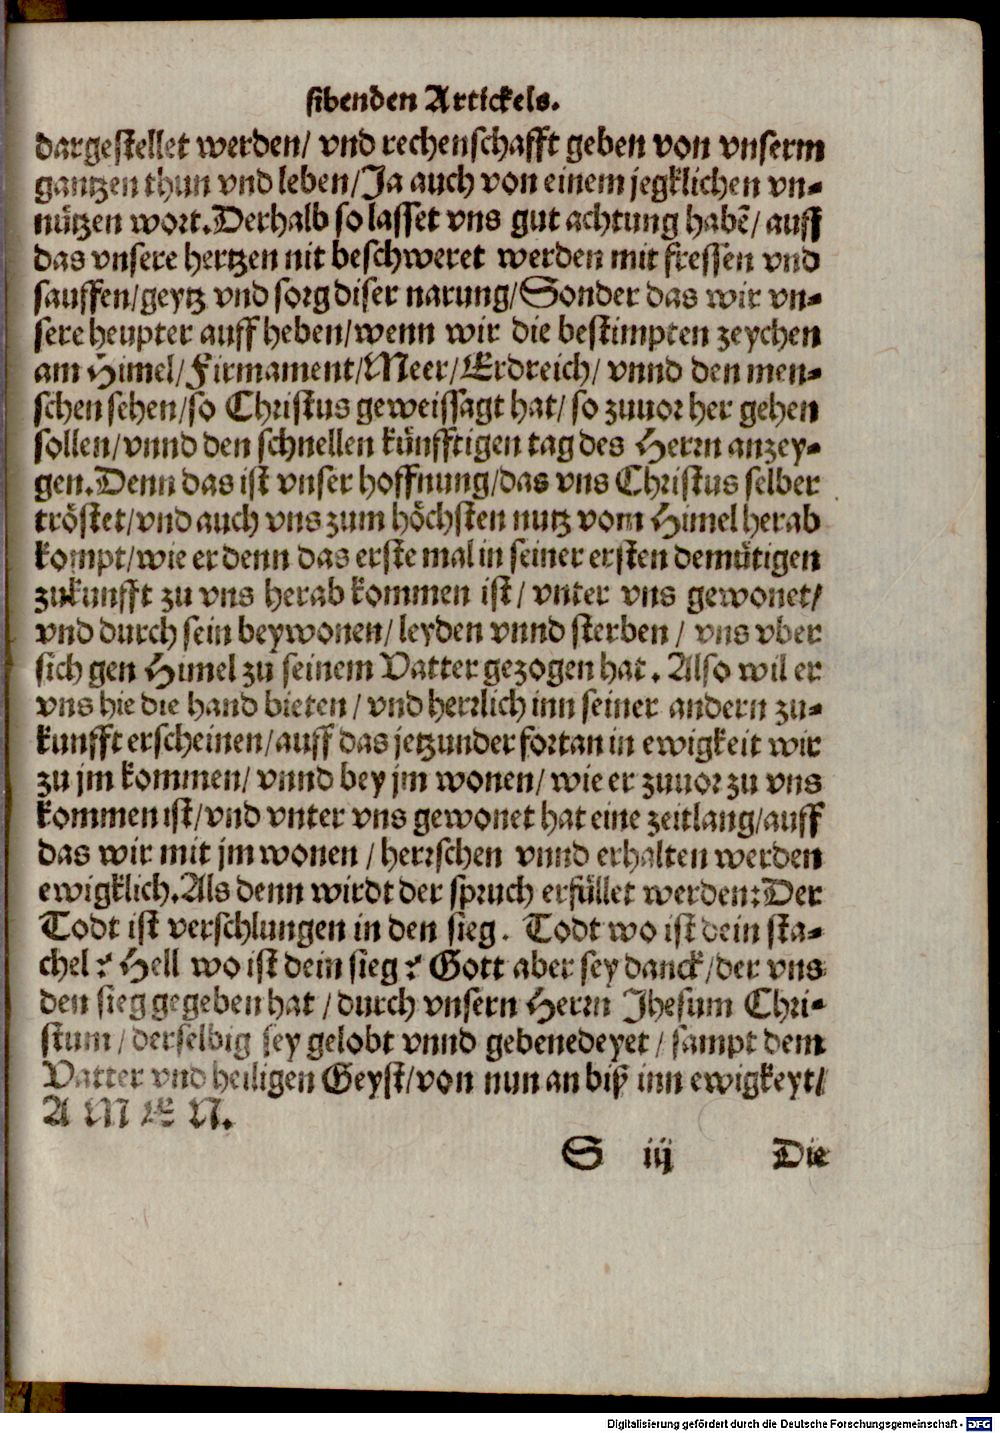 sibenden Artickels.
dargestellet werden/ vnd rechenschafft geben von vnserm
gantzen thun vnd leben/Ja auch von einem jegklichen vn-
nützen wort.Derhalb so lasset vns gut achtung habẽ/ auff
das vnsere hertzen nit beschweret werden mit fressen vnd
sauffen/geytz vnd sorg diser narung/Sonder das wir vn-
sere heupter auff heben/wenn wir die bestimpten zeychen
am Himel/Firmament/Meer/Erdreich/ vnnd den men-
schen sehen/so Christus geweissagt hat/ so zuuor her gehen
sollen/vnnd den schnellen künfftigen tag des Herrn anzey-
gen.Denn das ist vnser hoffnung/das vns Christus selber
tröstet/vnd auch vns zum höchsten nutz vom Himel herab
kompt/wie er denn das erste mal in seiner ersten demütigen
zukunfft zu vns herab kommen ist/ vnter vns gewonet/
vnd durch sein beywonen/ leyden vnnd sterben / vns vber
sich gen Himel zu seinem Vatter gezogen hat. Also wil er
vns hie die hand bieten / vnd herrlich inn seiner andern zu-
kunfft erscheinen/auff das jetzunder fortan in ewigkeit wir
zu jm kommen/ vnnd bey jm wonen/ wie er zuuor zu vns
kommen ist/vnd vnter vns gewonet hat eine zeitlang/auff
das wir mit jm wonen / herrschen vnnd erhalten werden
ewigklich.Als denn wirdt der spruch erfüllet werden:Der
Todt ist verschlungen in den sieg. Todt wo ist dein sta-
chel? Hell wo ist dein sieg? Gott aber sey danck/der vns
den sieg gegeben hat / durch vnsern Herrn Jhesum Chri-
stum / derselbig sey gelobt vnnd gebenedeyet / sampt dem
Vatter vnd heiligen Geyst/von nun an biß inn ewigkeyt/
A M E N.
S iij Die
Digitalisierung gefördert durch die Deutsche Forschungsgemeinschaft - DFG